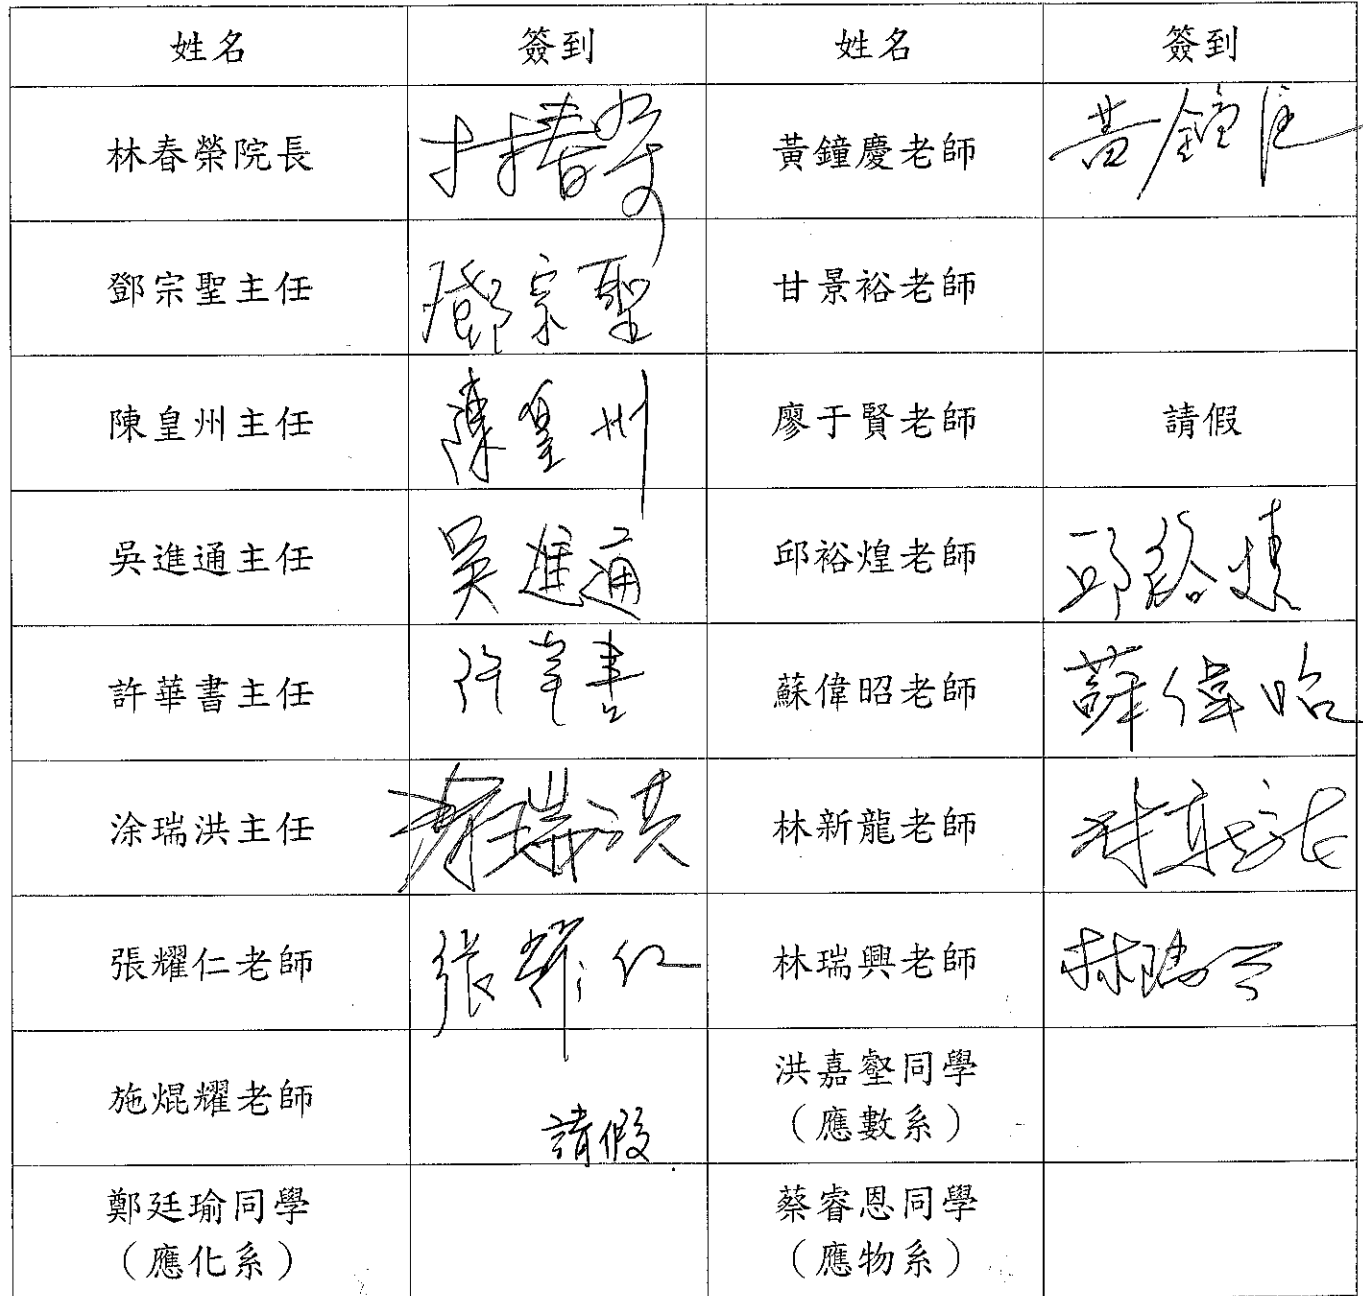 姓名 簽到 姓名 簽到
林春榮院長 林春榮 黃鐘慶老師 黃鐘慶
鄧宗聖主任 鄧宗聖 甘景裕老師
陳皇州主任 陳皇州 廖于賢老師 請假
吳進通主任 吳進通 邱裕煌老師 邱裕煌
許華書主任 許華書 蘇偉昭老師 蘇偉昭
涂瑞洪主任 涂瑞洪 林新龍老師 林新龍
張耀仁老師 張耀仁 林瑞興老師 林瑞興
施焜耀老師 請假 洪嘉壑同學
（應數系）
鄭廷瑜同學 蔡睿恩同學
（應化系） （應物系）